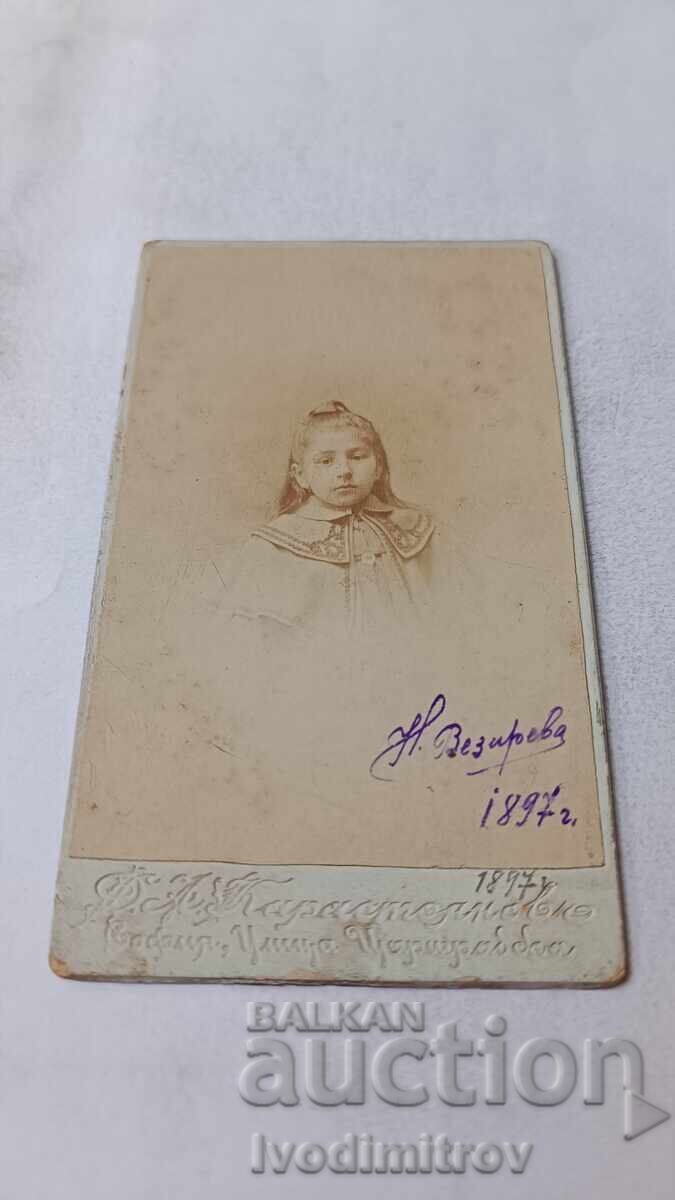 Н. Везирева
1897 г.
1897 г
Д. А. Карастояновъ
София, Улица Цариградска
BALKAN
auction
Ivodimitrov